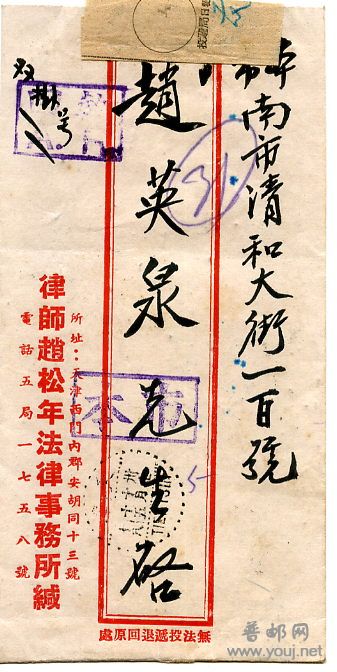 本市南市清和大街一百號
趙英泉先生啓
双掛号
本市
所址：天津西門內鄭安胡同十三號
律師趙松年法律事務所緘
電話五局一七五八號
無法投遞退回原處
普邮网
www.youj.net